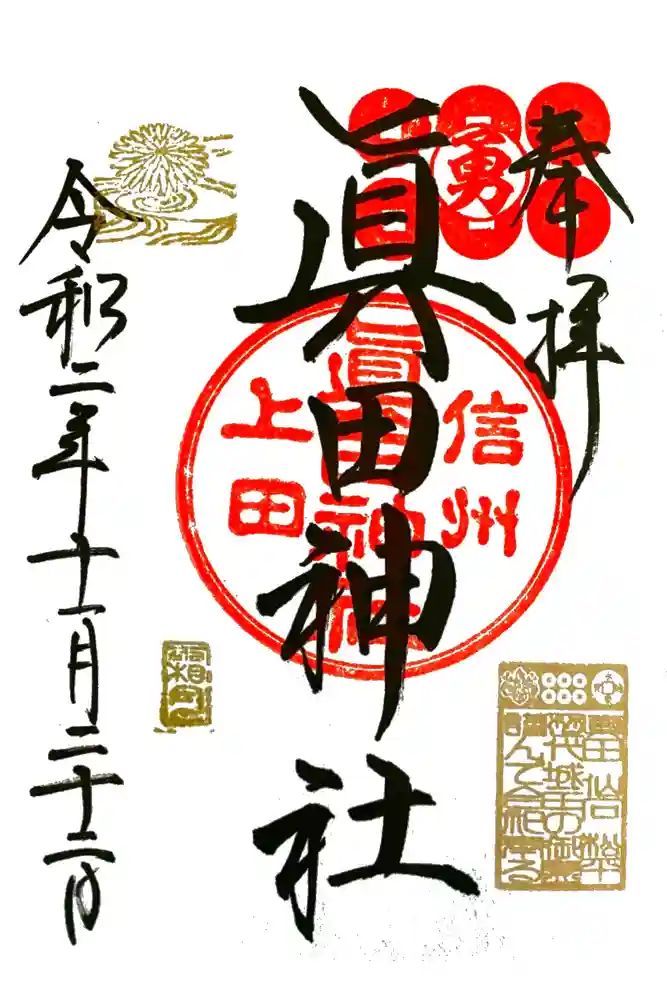 奉拝
勇
眞田神社
信州
眞田神社
上田
令和二年十一月二十二日